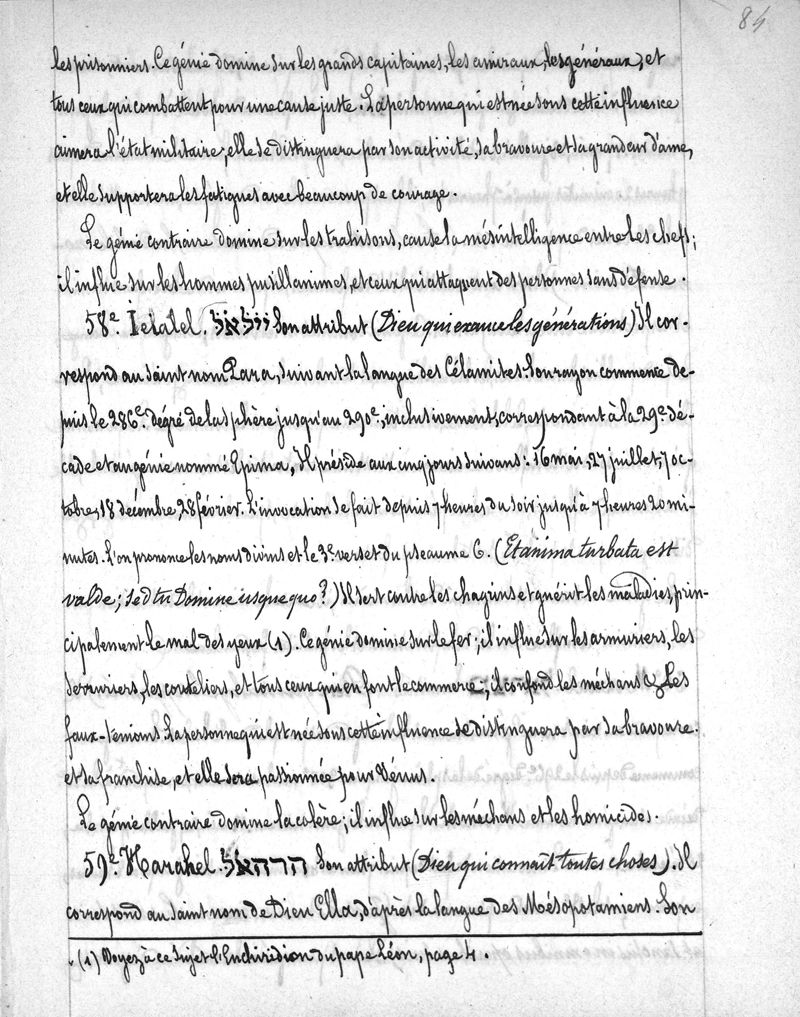 84
les prisonniers. Ce génie domine sur les grands capitaines, les amiraux, les généraux, et
tous ceux qui combattent pour une cause juste. La personne qui est née sous cette influence
aimera l'état militaire; elle se distinguera par son activité, sa bravoure et sa grandeur d'ame,
et elle supportera les fatigues avec beaucoup de courage.
Le génie contraire domine sur les trahisons, cause la mésintelligence entre les chefs;
il influe sur les hommes pusillanimes, et ceux qui attaquent des personnes sans défense.
58e. Ieialel. יילאל Son attribut (Dieu qui exauce les générations) Il cor-
respond au saint nom Para, suivant la langue des Célamites. Son rayon commence de-
puis le 286e. dégré de la sphère jusqu'au 290e., inclusivement, correspondant à la 29e. dé-
cade et au génie nommé Epima, Il préside aux cinq jours suivans: 16 mai, 27 juillet, 7 oc-
tobre, 18 décembre, 28 février. L'invocation se fait depuis 7 heures du soir jusqu'à 7 heures 20 mi-
nutes. L'on prononce les noms divins et le 3e. verset du pseaume 6. (Et anima turbata est
valde; sed tu Domine usque quo?) Il sert contre les chagrins et guérit les maladies, prin-
cipalement le mal des yeux (1). Ce génie domine sur le fer; il influe sur les armuriers, les
serruriers, les couteliers, et tous ceux qui en font le commerce; il confond les méchans & les
faux-temoins. La personne qui est née sous cette influence se distinguera par sa bravoure
et sa franchise, et elle sera passionnée pour Vénus.
Le génie contraire domine la colère; il influe sur les méchans et les homicides.
59e. Harahel. הרהאל Son attribut (Dieu qui connait toutes choses). Il
correspond au saint nom de Dieu Ella, d'après la langue des Mésopotamiens. Son
(1) Voyez à ce sujet l'Enchiridion du pape Léon, page 4.